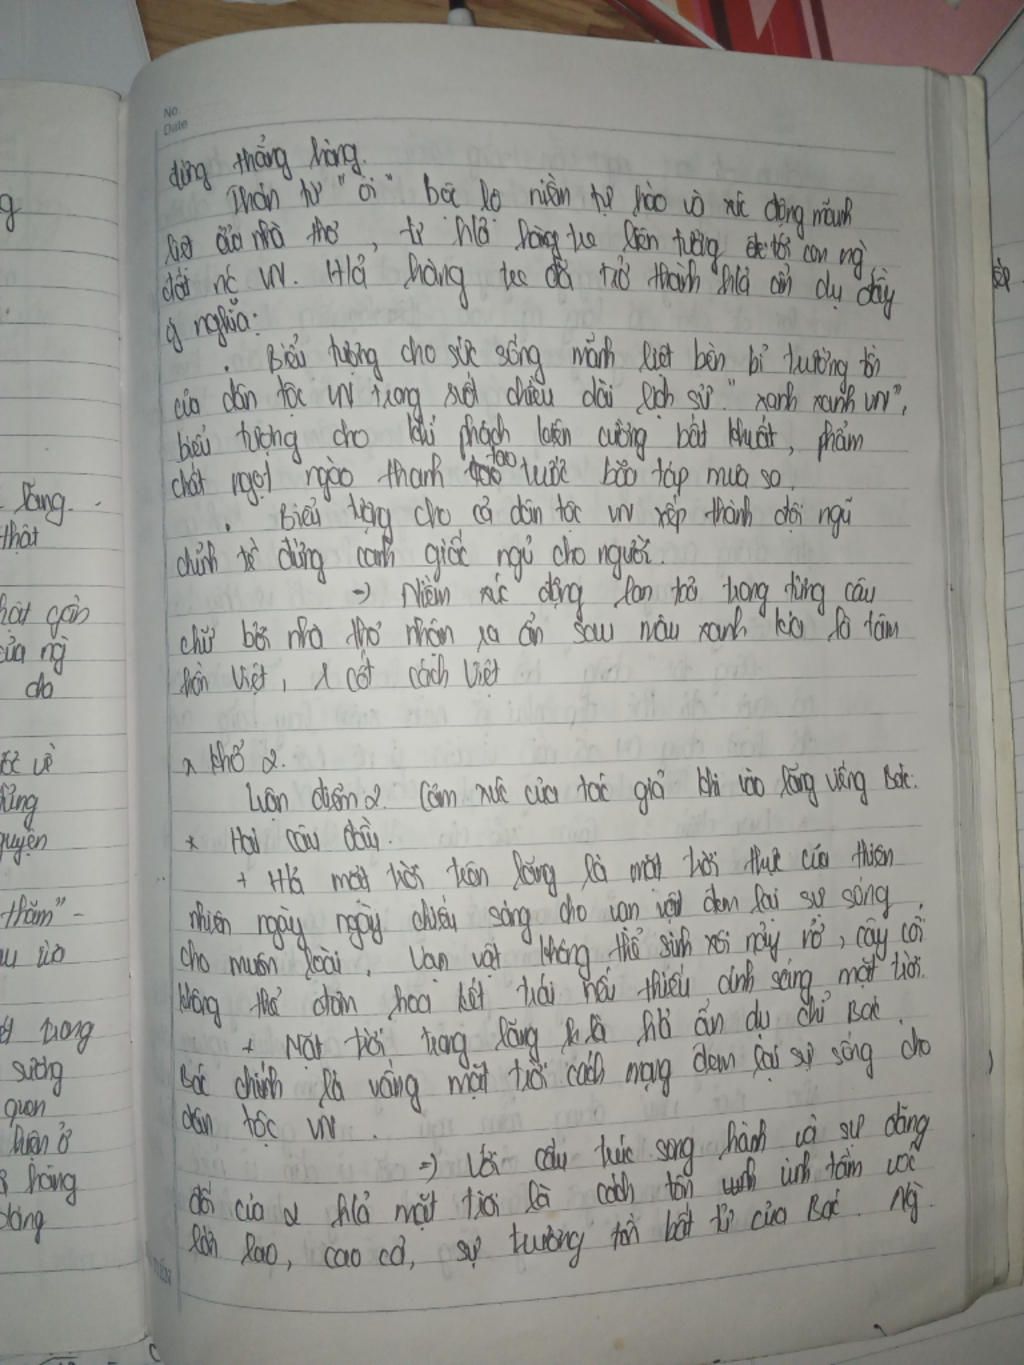 No
Date
đứng thẳng hàng.
Thán từ "ôi" bộc lộ niềm tự hào và xúc động mãnh
liệt của nhà thơ, từ h/ả hàng tre liên tưởng tới con ng
đất nc VN. H/ả hàng tre đã trở thành h/ả ẩn dụ đầy
ý nghĩa:
. Biểu tượng cho sức sống mãnh liệt bền bỉ trường tồn
của dân tộc VN trong suốt chiều dài lịch sử "xanh xanh VN",
biểu tượng cho khí phách kiên cường bất khuất, phẩm
chất ngọt ngào thanh tao trước bão táp mưa sa.
. Biểu tượng cho cả dân tộc VN xếp thành đội ngũ
chỉnh tề đứng canh giấc ngủ cho người.
=> Niềm xúc động lan toả trong từng câu
chữ bởi nhà thơ nhận ra ẩn sau màu xanh kia là tâm
hồn Việt, 1 cốt cách Việt
* Khổ 2.
Luận điểm 2. Cảm xúc của tác giả khi vào lăng viếng Bác.
* Hai câu đầu.
+ H/ả mặt trời trên lăng là mặt trời thực của thiên
nhiên ngày ngày chiếu sáng cho vạn vật đem lại sự sống
cho muôn loài. Vạn vật không thể sinh sôi nảy nở, cây cối
không thể đơm hoa kết trái nếu thiếu ánh sáng mặt trời.
+ Mặt trời trong lăng là h/ả ẩn dụ chỉ Bác.
Bác chính là vầng mặt trời cách mạng đem lại sự sống cho
dân tộc VN.
=> Với cấu trúc song hành và sự đăng
đối của 2 h/ả mặt trời là cách tôn vinh tầm vóc
lớn lao, cao cả, sự trường tồn bất tử của Bác. Ng
g
lăng.
thật
của ng
do
quyện
thăm" -
trong
sương
quan
hiện ở
hàng